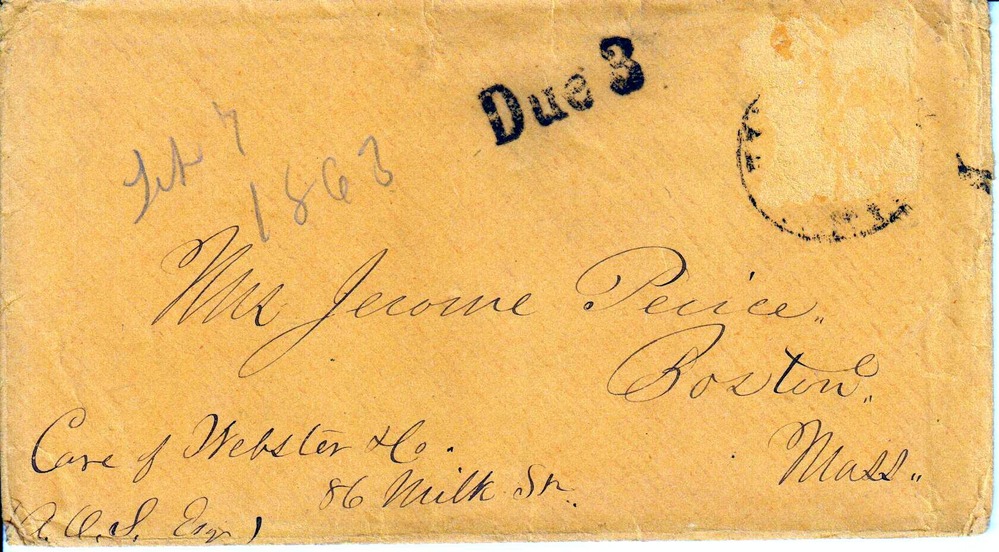 Due 3
Feb 7
1863
Mrs Jerome Peirce.
Boston.
Mass..
Care of Webster & Co.
86 Milk St.
Esqr)